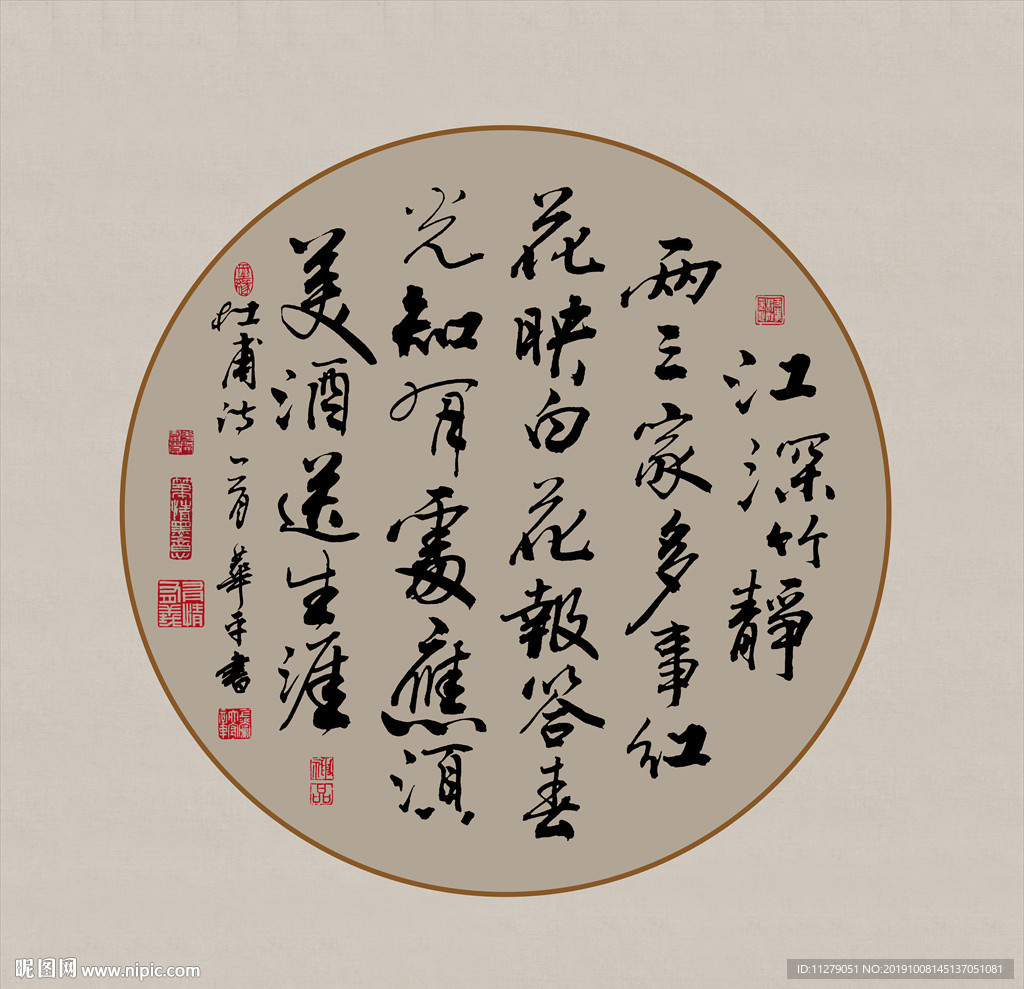 江深竹靜
两三家多事紅
花映白花報答春
光知有處應須
美酒送生涯
杜甫诗一首華平書
神品
昵图网 www.nipic.com
ID:11279051 NO:20191008145137051081